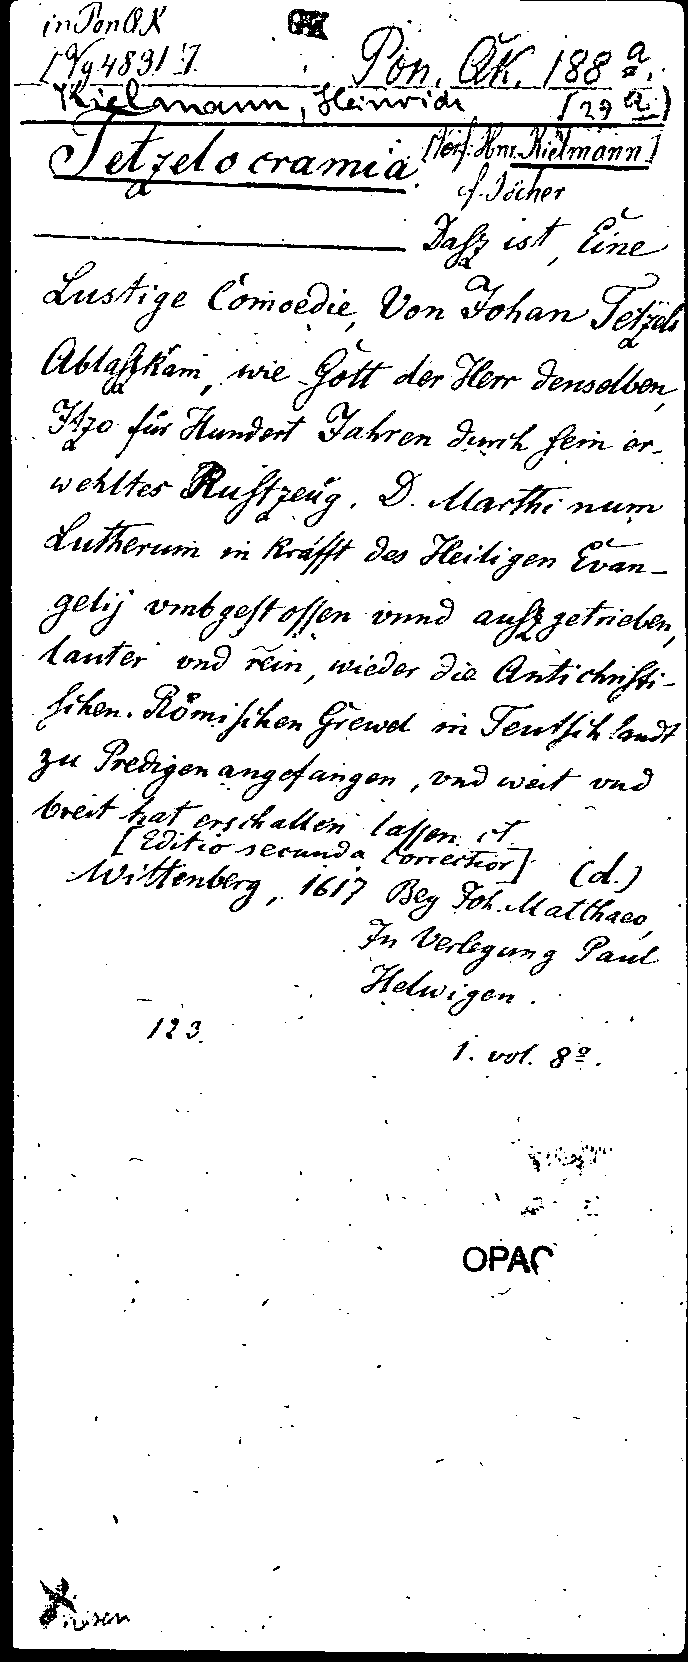 in Pon QK
[Vg 4831]
Pon. QK. 188 a.
Kielmann, Heinrich
(29 a)
Tetzelocramia.
[Verf. Hnr. Kielmann]
cf. Jöcher
Dasz ist, Eine
Lustige Comoedie, Von Johan Tetzels
Ablaszkam, wie Gott der Herr denselben,
Itzo für Hundert Jahren durch sein er-
wehltes Rustzeug. D. Marthinum
Lutherum in krafft des Heiligen Evan-
gelij vmbgestossen vnnd auszgetrieben,
lauter vnd rein, wieder die Antichristi-
schen. Römischen Grewel in Teutschlandt
zu Predigen angefangen, vnd weit vnd
breit hat erschallen lassen et
[Editio secunda correctior]
(d.)
Wittenberg, 1617 Bey Joh. Matthaeo,
In Verlegung Paul
Helwigen.
123.
1. vol. 8º.
OPAC